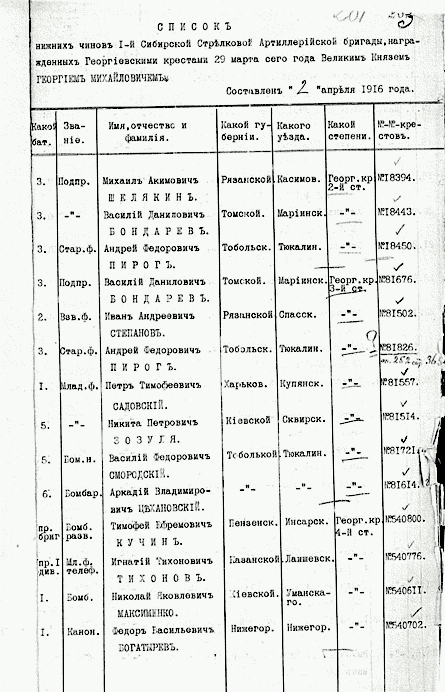 СПИСОКЪ
нижнихъ чиновъ I-й Сибирской Стрѣлковой Артиллерійской бригады, награ-
жденныхъ Георгіевскими крестами 29 марта сего года Великимъ Княземъ
ГЕОРГІЕМЪ МИХАЙЛОВИЧЕМЪ.
Составленъ "2" апрѣля 1916 года.
Какой бат. Зва-ніе. Имя, отчество и фамилія. Какой гу-берніи. Какого уѣзда. Какой степени. №-№-кре-стовъ.
3. Подпр. Михаилъ Акимовичъ Рязанской. Касимов. Георг.кр. №18394.
ШЕЛЯКИНЪ. 2-й ст.
3. -"- Василій Даниловичъ Томской. Маріинск. -"- №18443.
БОНДАРЕВЪ.
3. Стар.ф. Андрей Федоровичъ Тобольск. Тюкалин. -"- №18450.
ПИРОГЪ.
3. Подпр. Василій Даниловичъ Томской. Маріинск. Георг.кр. №81676.
БОНДАРЕВЪ. 3-й ст.
2. Взв.ф. Иванъ Андреевичъ Рязанской Спасск. -"- №81502.
СТЕПАНОВЪ.
3. Стар.ф. Андрей Федоровичъ Тобольск. Тюкалин. -"- ? №81826.
ПИРОГЪ.
I. Млад.ф. Петръ Тимофеевичъ Харьков. Купянск. -"- №81557.
САДОВСКІЙ.
5. -"- Никита Петровичъ Кіевской Сквирск. -"- №81514.
ЗОЗУЛЯ.
5. Бом.н. Василій Федоровичъ Тобольской Тюкалин. -"- №81721.
СМОРОДСКІЙ.
6. Бомбар. Аркадій Владимиро- -"- -"- -"- №81614.
вичъ ЦЕХАНОВСКІЙ.
пр. Бомб. Тимофей Ефремовичъ Пензенск. Инсарск. Георг.кр. №540800.
бриг разв. КУЧИНЪ. 4-й ст.
пр.I Мл.ф. Игнатій Тихоновичъ Казанской. Лаишевск. -"- №540776.
див. телеф. ТИХОНОВЪ.
I. Бомб. Николай Яковлевичъ Кіевской. Уманска- -"- №540611.
МАКСИМЕНКО. го.
I. Канон. Федоръ Васильевичъ Нижегор. Нижегор. -"- №540702.
БОГАТЫРЕВЪ.